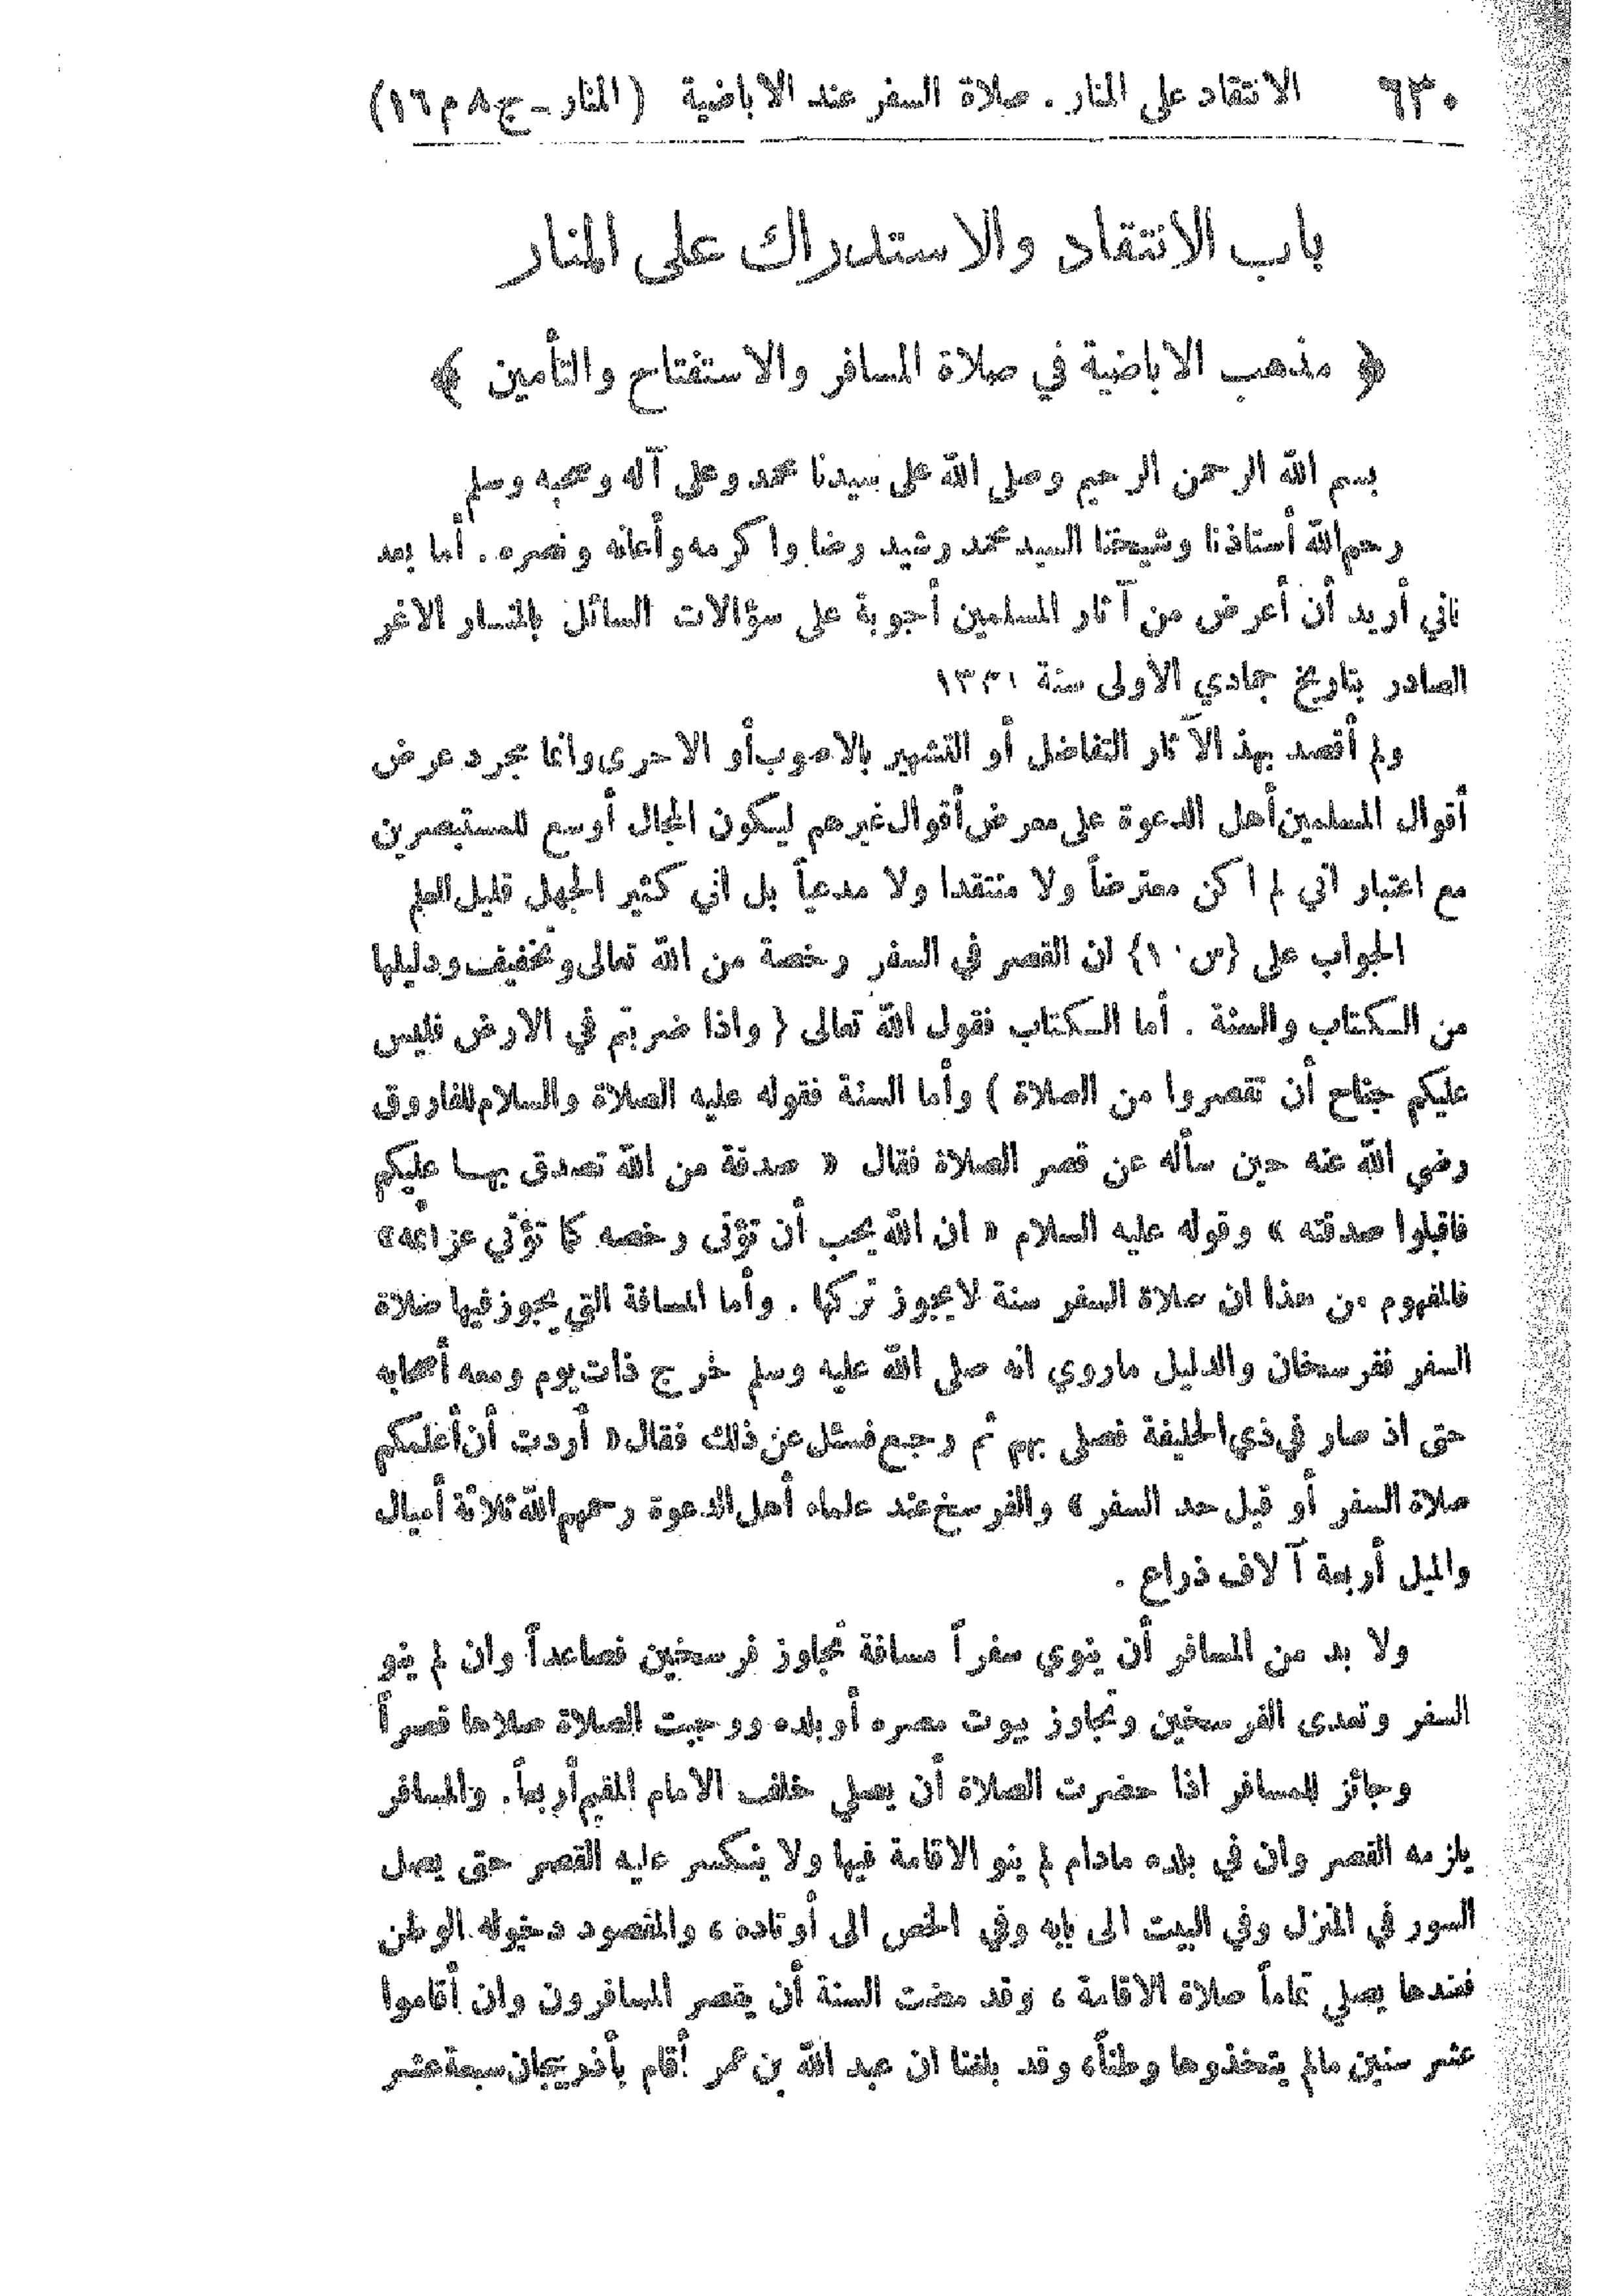 ٦٣٠ الانتقاد على المنار . صلاة السفر عند الاباضية (المنار ـ ج ٨ م ١٦)
باب الانتقاد والاستدراك على المنار
﴿ مذهب الاباضية في صلاة المسافر والاستفتاح والتأمين ﴾
بسم الله الرحمن الرحيم وصلى الله على سيدنا محمد وعلى آله وصحبه وسلم
رحم الله أستاذنا وشيخنا السيد محمد رشيد رضا واكرمه وأعانه ونصره . أما بعد
فاني أريد أن أعرض من آثار المسلمين أجوبة على سؤالات السائل بالمنار الاغر
الصادر بتاريخ جمادي الأولى سنة ١٣٣١
ولم أقصد بهذ الآثار التفاضل أو التشهير بالاصوب أو الاحرى وانما مجرد عرض
أقوال المسلمين أهل الدعوة على معرض أقوال غيرهم ليكون المجال أوسع للمستبصرين
مع اعتبار اني لم اكن معترضاً ولا منتقدا ولا مدعياً بل اني كثير الجهل قليل العلم
الجواب على {س ١٠} ان القصر في السفر رخصة من الله تعالى وتخفيف ودليلها
من الكتاب والسنة . أما الكتاب فقول الله تعالى ( واذا ضربتم في الارض فليس
عليكم جناح أن تقصروا من الصلاة ) وأما السنة فقوله عليه الصلاة والسلام للفاروق
رضي الله عنه حين سأله عن قصر الصلاة فقال « صدقة من الله تصدق بها عليكم
فاقبلوا صدقته » وقوله عليه السلام « ان الله يحب أن تؤتى رخصه كما تؤتي عزائمه »
فالمفهوم من هذا ان صلاة السفر سنة لا يجوز تركها . وأما المسافة التي يجوز فيها صلاة
السفر ففرسخان والدليل ماروي انه صلى الله عليه وسلم خرج ذات يوم ومعه أصحابه
حتى اذ صار في ذي الحليفة فصلى بهم ثم رجع فسئل عن ذلك فقال « أردت أن أعلمكم
صلاة السفر أو قبل حد السفر » والفرسخ عند علماء أهل الدعوة رحمهم الله ثلاثة أميال
والميل أربعة آلاف ذراع .
ولا بد من المسافر أن ينوي سفراً مسافة تجاوز فرسخين فصاعداً وان لم ينو
السفر وتعدى الفرسخين وتجاوز بيوت مصره أو بلده ووجبت الصلاة صلاها قصراً
وجائز للمسافر اذا حضرت الصلاة أن يصلي خلف الامام المقيم أربعاً . والمسافر
يلزمه القصر وان في بلده مادام لم ينو الاقامة فيها ولا ينكسر عليه القصر حتى يصل
السور في المنزل وفي البيت الى بابه وفي الخص الى أوتاده ، والمقصود دخوله الوطن
فعندها يصلي تماماً صلاة الاقامة ، وقد مضت السنة أن يقصر المسافرون وان أقاموا
عشر سنين مالم يتخذوها وطناً ، وقد بلغنا ان عبد الله بن عمر أقام بأذريجان سبعة عشر